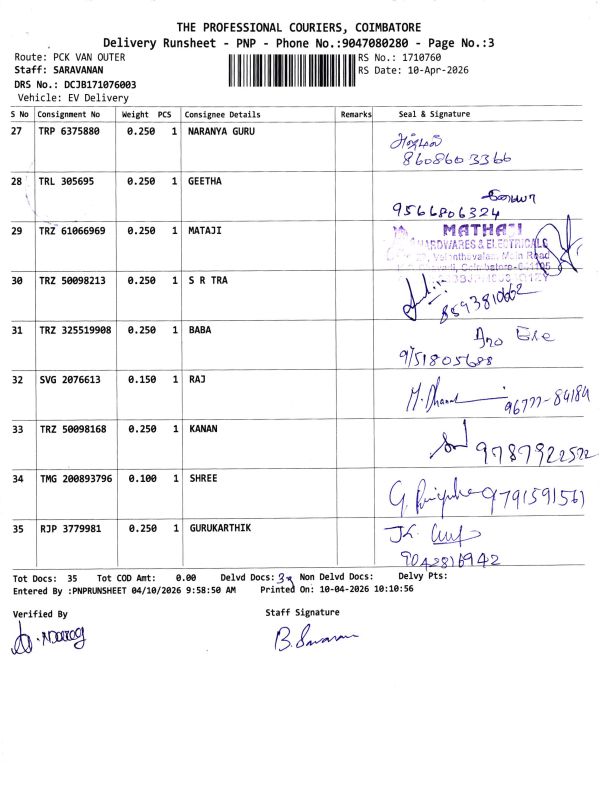 THE PROFESSIONAL COURIERS, COIMBATORE
Delivery Runsheet - PNP - Phone No.:9047080280 - Page No.:3
Route: PCK VAN OUTER RS No.: 1710760
Staff: SARAVANAN RS Date: 10-Apr-2026
DRS No.: DCJB171076003
Vehicle: EV Delivery
S No Consignment No Weight PCS Consignee Details Remarks Seal & Signature
27 TRP 6375880 0.250 1 NARANYA GURU
8608603366
28 TRL 305695 0.250 1 GEETHA
9566806324
29 TRZ 61066969 0.250 1 MATAJI
MATHAJI
HARDWARES & ELECTRICALS
Main Road
30 TRZ 50098213 0.250 1 S R TRA
8593810662
31 TRZ 325519908 0.250 1 BABA
9751805688
32 SVG 2076613 0.150 1 RAJ
96777-84184
33 TRZ 50098168 0.250 1 KANAN
9787922522
34 TMG 200893796 0.100 1 SHREE
9791591561
35 RJP 3779981 0.250 1 GURUKARTHIK
9042816942
Tot Docs: 35 Tot COD Amt: 0.00 Delvd Docs: Non Delvd Docs: Delvy Pts:
Entered By :PNPRUNSHEET 04/10/2026 9:58:50 AM Printed On: 10-04-2026 10:10:56
Verified By Staff Signature
B. Saravanan